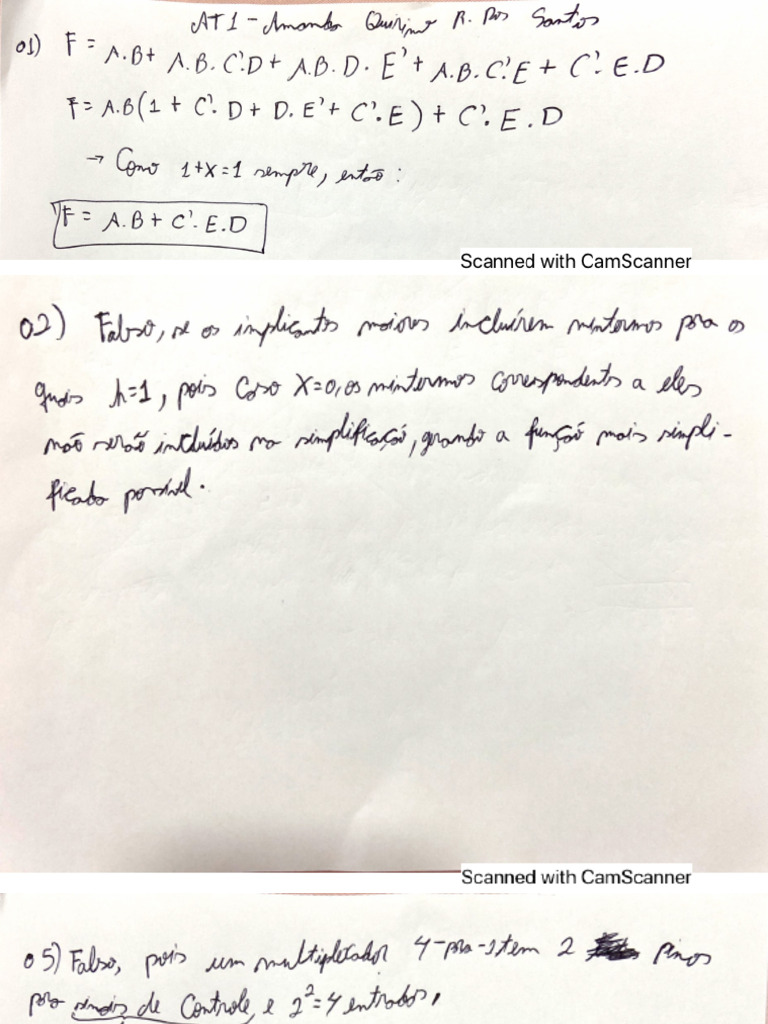 AT1 - Amanda Quirino R. Dos Santos
01) F = A.B + A.B.C'.D + A.B.D.E' + A.B.C'.E + C'.E.D
F = A.B(1 + C'.D + D.E' + C'.E) + C'.E.D
→ Como 1+X=1 sempre, então:
F = A.B + C'.E.D
Scanned with CamScanner
02) Falso, se os implicantes maiores incluírem mintermos pra os
quais h=1, pois caso X=0, os mintermos correspondentes a eles
não serão incluídos na simplificação, gerando a função mais simpli-
ficada possível.
Scanned with CamScanner
05) Falso, pois um 4-pra-1 tem 2 pinos
pra sinais de controle, e 2²=4 entradas,